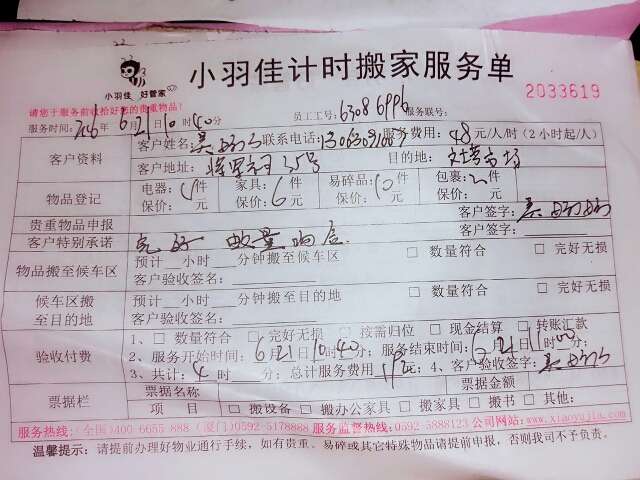 小羽佳 好管家
小羽佳计时搬家服务单
2033619
请您于服务前收拾好您的贵重物品!
服务时间: 6月21日10时40分 员工工号: 6308 6996 服务联号:
客户资料
客户姓名: 联系电话: 服务费用: 48元/人/时 (2小时起/人)
客户地址: 35号 目的地:
物品登记
电器: 件 家具: 件 易碎品: 件 包裹: 件
保价: 元 保价: 元 保价: 元 保价: 元
贵重物品申报 客户签字:
客户特别承诺 完好 数量吻合 客户签字:
物品搬至候车区
预计 小时 分钟搬至候车区 □ 数量符合 □ 完好无损
客户验收签名:
候车区搬至目的地
预计 小时 分钟搬至目的地 □ 数量符合 □ 完好无损
客户验收签名:
验收付费
1、□ 数量符合 □ 完好无损 □ 按需归位 □ 现金结算 □ 转账汇款
2、服务开始时间: 6月21日10时40分; 服务结束时间: 月21日 时00分;
3、共计: 4时 分; 总计服务费用 元; 4、客户验收签字:
票据栏
票据名称 票据金额
项目 □ 搬设备 □ 搬办公家具 □ 搬家具 □ 搬书 □ 其他:
服务热线: (全国)400-6655 888 (厦门)0592-5178888 服务监督热线: 0592-5888123 公司网站: www.xiaoyujia.com
温馨提示: 请提前办理好物业通行手续, 如有贵重、易碎或其它特殊物品请提前申报, 否则我司不予负责。